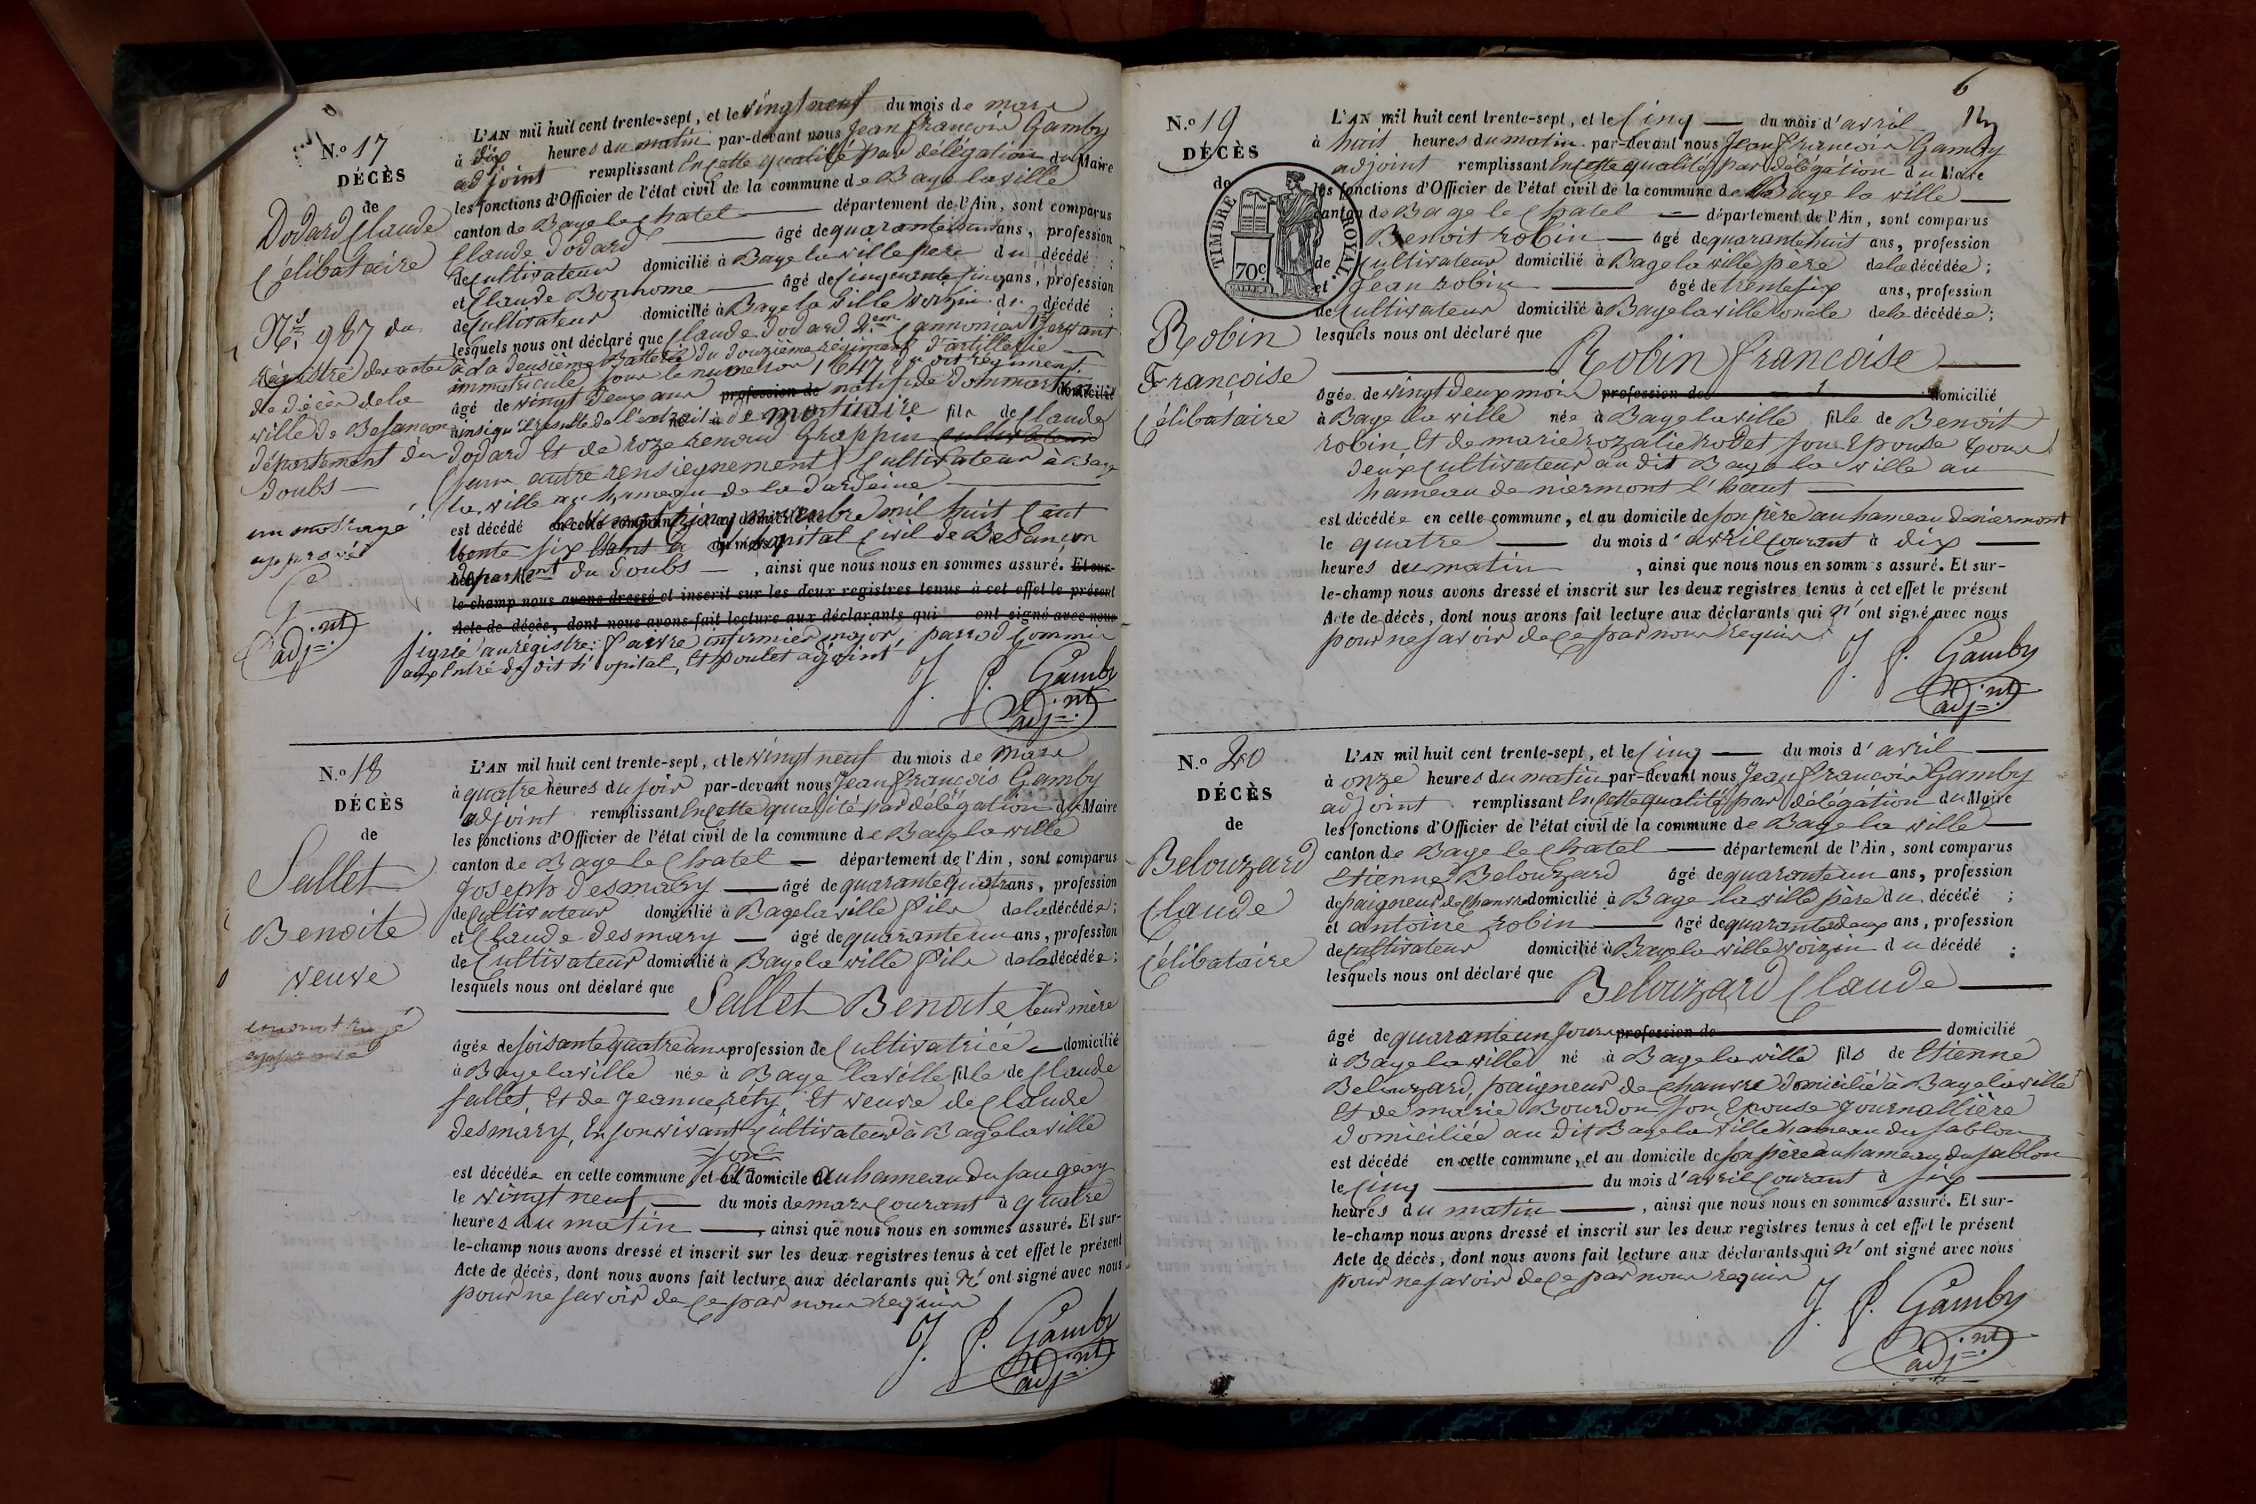 N.o 17
DÉCÈS
de
Dodard Claude
Célibataire
N.o 987 du
régistre des actes
de décès de la
ville de Besançon
département du
doubs
un mot rayé
approuvé
G
adj.nt
L'AN mil huit cent trente-sept, et le vingt neuf du mois de mars
à dix heures du matin par-devant nous Jean françois Gamby
adjoint remplissant En cette qualité par délégation du Maire
les fonctions d'Officier de l'état civil de la commune de Bage la ville
canton de Bage le Chatel département de l'Ain, sont comparus
Claude Dodard âgé de quarante ans, profession
de Cultivateur domicilié à Bage la ville père du décédé ;
et Claude Bonhome âgé de cinquante cinq ans, profession
de Cultivateur domicilié à Bage la ville voizin du décédé ;
lesquels nous ont déclaré que Claude Dodard 2.em Cannonier servant
à la deusième Batterie du douzième régiment d'artillerie
immatriculé sous le numero 1647 du dit régiment
âgé de vingt deux ans profession de natif de dommartin domicilié
ainsi qu'il résulte de l'extrait mortuaire fils de Claude
Dodard Et de roze renoud Grappin cultivateur
(sans autre renseignement) Cultivateur à Bage
la ville au hameau de la
est décédé en cette commune, et au domicile de le vingt cinq novembre mil huit Cent
trente six dans du mois hopital Civil de Besançon
département du doubs , ainsi que nous nous en sommes assuré. Et sur-
le-champ nous avons dressé et inscrit sur les deux registres tenus à cet effet le présent
Acte de décès, dont nous avons fait lecture aux déclarants qui ont signé avec nous
signé au régistre: infirmier major, Commis
aux Entré du dit hopital, Et Poulet adjoint
J. f. Gamby
adj.nt
N.o 18
DÉCÈS
de
Sallet
Benoite
veuve
L'AN mil huit cent trente-sept, et le vingt neuf du mois de mars
à quatre heures du soir par-devant nous Jean françois Gamby
adjoint remplissant En cette qualité par délégation du Maire
les fonctions d'Officier de l'état civil de la commune de Bage la ville
canton de Bage le Chatel département de l'Ain, sont comparus
Joseph desmary âgé de quarante quatre ans, profession
de Cultivateur domicilié à Bage la ville fils de la décédée ;
et Claude desmary âgé de quarante un ans, profession
de Cultivateur domicilié à Bage la ville fils de la décédée ;
lesquels nous ont déclaré que
Sallet Benoite leur mère
âgée de soisante quatre ans profession de Cultivatrice domicilié
à Bage la ville née à Bage la ville fille de Claude
Sallet, Et de Jeanne réty, Et veuve de Claude
desmary, En son vivant Cultivateur à Bage la ville
est décédée en cette commune et au domicile au hameau du saugey
le vingt neuf du mois de mars Courant à quatre
heures du matin , ainsi que nous nous en sommes assuré. Et sur-
le-champ nous avons dressé et inscrit sur les deux registres tenus à cet effet le présent
Acte de décès, dont nous avons fait lecture aux déclarants qui n' ont signé avec nous
pour ne savoir de ce par nous requis
J. f. Gamby
adj.nt
6
N.o 19
DÉCÈS
de
TIMBRE ROYAL
70c
Robin
Françoise
Célibataire
L'AN mil huit cent trente-sept, et le Cinq du mois d'avril
à huit heures du matin par-devant nous Jean françois Gamby
adjoint remplissant En cette qualité par délégation du Maire
les fonctions d'Officier de l'état civil de la commune de Bage la ville
canton de Bage le Chatel département de l'Ain, sont comparus
Benoit robin âgé de quarante huit ans, profession
de Cultivateur domicilié à Bage la ville père de la décédée ;
et Jean robin âgé de trente six ans, profession
de Cultivateur domicilié à Bage la ville oncle de la décédée ;
lesquels nous ont déclaré que
Robin françoise
âgée de vingt deux mois profession de domicilié
à Bage la ville née à Bage la ville fille de Benoit
robin Et de marie rozalie rodet son Epouse tous
deux Cultivateur au dit Bage la ville au
hameau de niermont l'haut
est décédée en cette commune, et au domicile de son père au hameau de niermont
le quatre du mois d'avril Courant à dix
heures du matin , ainsi que nous nous en sommes assuré. Et sur-
le-champ nous avons dressé et inscrit sur les deux registres tenus à cet effet le présent
Acte de décès, dont nous avons fait lecture aux déclarants qui n' ont signé avec nous
pour ne savoir de ce par nous requis
J. f. Gamby
adj.nt
N.o 20
DÉCÈS
de
Belouzard
Claude
Célibataire
L'AN mil huit cent trente-sept, et le Cinq du mois d'avril
à onze heures du matin par-devant nous Jean françois Gamby
adjoint remplissant En cette qualité par délégation du Maire
les fonctions d'Officier de l'état civil de la commune de Bage la ville
canton de Bage le Chatel département de l'Ain, sont comparus
Etienne Belouzard âgé de quarante un ans, profession
de paigneur de Chanvre domicilié à Bage la ville père du décédé ;
et antoine robin âgé de quarante deux ans, profession
de Cultivateur domicilié à Bage la ville voizin du décédé ;
lesquels nous ont déclaré que
Belouzard Claude
âgé de quarante un jours profession de domicilié
à Bage la ville né à Bage la ville fils de Etienne
Belouzard, paigneur de chanvre domicilié à Bage la ville
Et de marie Bourdon son Epouse Journallière
domiciliée au dit Bage la ville hameau du sablon
est décédé en cette commune, et au domicile de son père au hameau du sablon
le Cinq du mois d'avril Courant à six
heures du matin , ainsi que nous nous en sommes assuré. Et sur-
le-champ nous avons dressé et inscrit sur les deux registres tenus à cet effet le présent
Acte de décès, dont nous avons fait lecture aux déclarants qui n' ont signé avec nous
pour ne savoir de ce par nous requis
J. f. Gamby
adj.nt